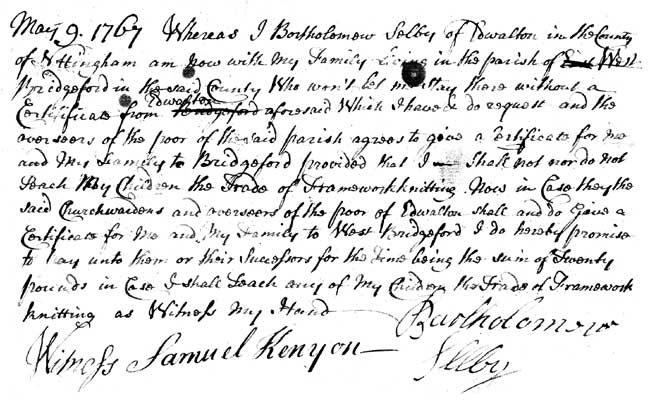 May 9. 1767 Whereas I Bartholomew Selby of Edwalton in the County
of Nottingham am now with My Family Living in the parish of East West
Bridgeford in the said County Who won't let me Stay there without a
Edwalton
Certificate from Bridgeford aforesaid Which I have & do request and the
overseers of the poor of the said parish agrees to give a Certificate for me
and My Family to Bridgeford provided that I Shall not nor do not
Teach My Children the Trade of Frameworkknitting. Now in Case they the
said Churchwardens and overseers of the poor of Edwalton shall and do Give a
Certificate for Me and My Family to West Bridgeford I do hereby promise
to pay unto them or their Successors for the Time being the sum of Twenty
pounds in Case I shall Teach any of My Children the Trade of Framework
knitting as Witness My Hand
Bartholomew
Selby
Witness Samuel Kenyon